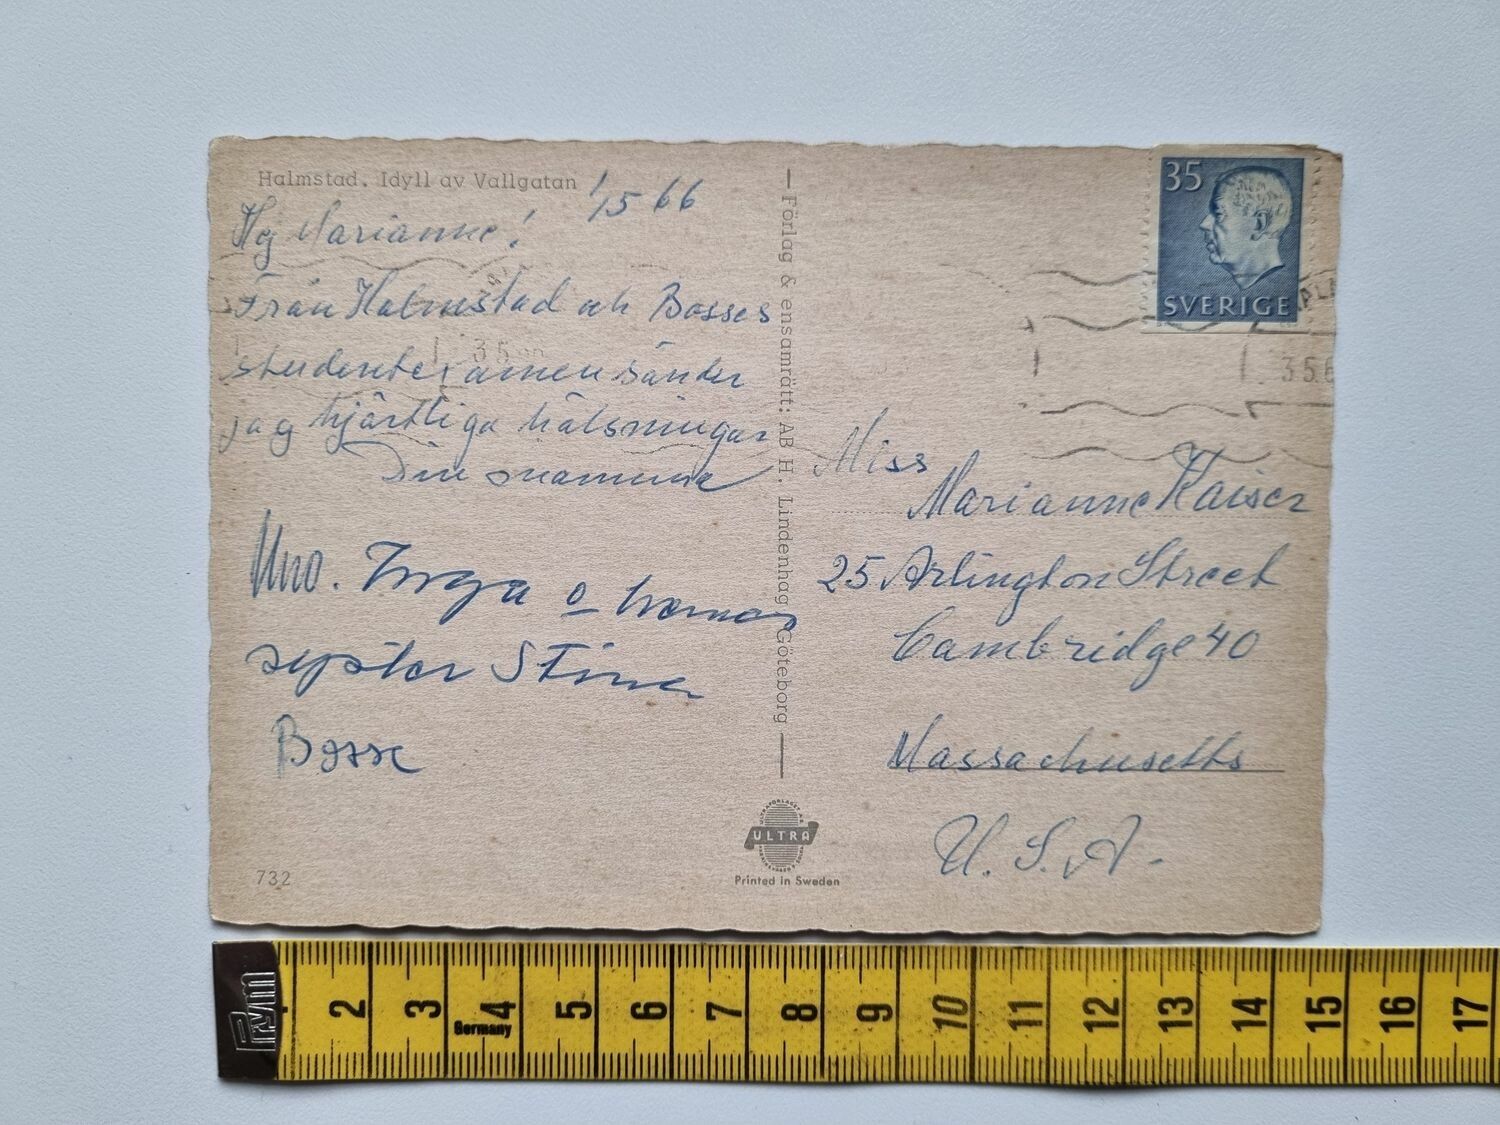 Halmstad. Idyll av Vallgatan
1/5 66
Hej Marianne!
Från Halmstad och Bosses
studentexamen sänder
jag hjärtliga hälsningar
Din mamma
Uno. Inga o hennes
syster Stina
Bosse
732
Förlag & ensamrätt: AB H. Lindenhag, Göteborg
ULTRA
Printed in Sweden
35
SVERIGE
Miss
Marianne Kaiser
25 Arlington Street
Cambridge 40
Massachusetts
U.S.A.
Prym
2 3 4 5 6 7 8 9 10 11 12 13 14 15 16 17
Germany